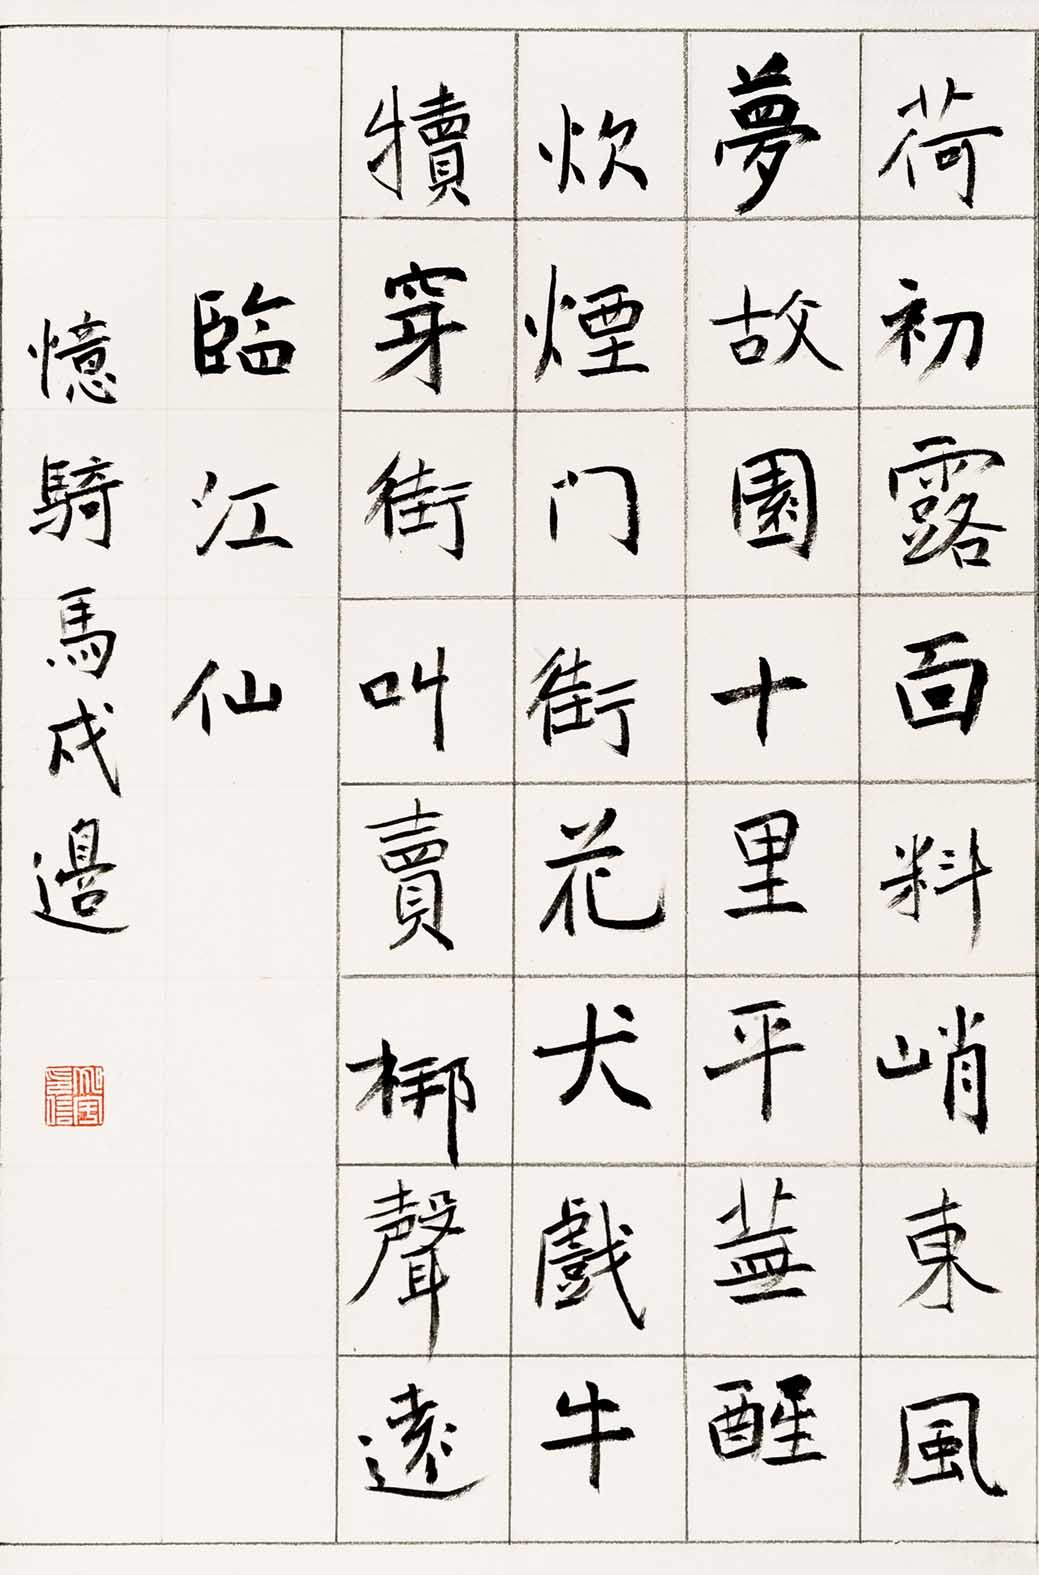 荷初露面料峭東風
夢故園十里平蕪醒
炊煙门街花犬戲牛
犢穿街叫賣梆聲遠
臨江仙
憶騎馬戍邊